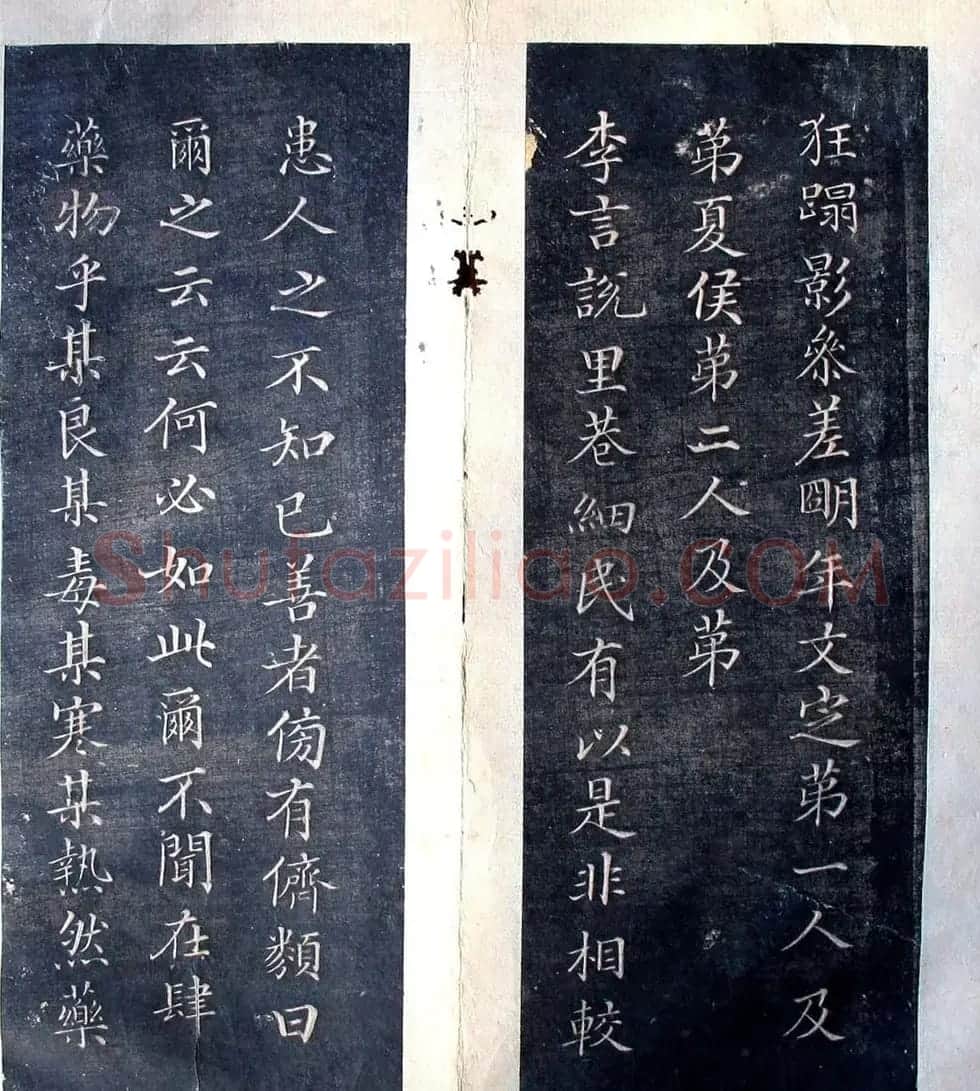 狂蹋影叅差朙年文定苐一人及
苐夏侯苐二人及苐
李言說里巷細民有以是非相較
患人之不知已善者傍有儕類曰
爾之云云何必如此爾不聞在肆
藥物乎某良某毒某寒某熱然藥
Shufaziliao.COM